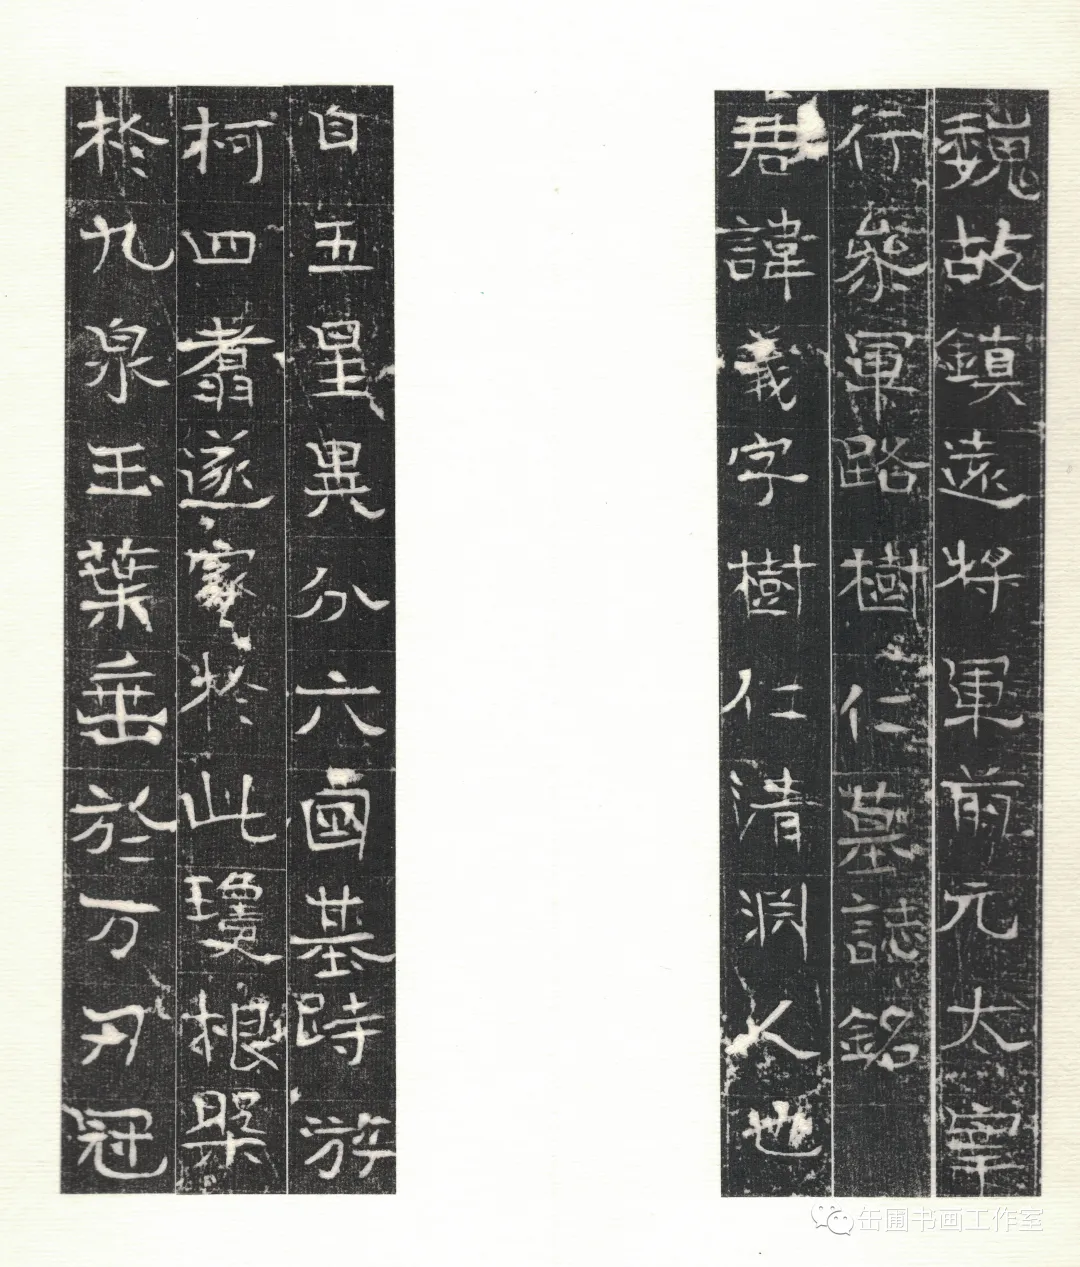 魏故鎮遠將軍前元太宰
行參軍路樹仁墓誌銘
君諱義字樹仁清淵人也
自五星異分六國基時游
柯四翥遂家於此瓊根槃
於九泉玉葉垂於万刃冠
缶圃书画工作室